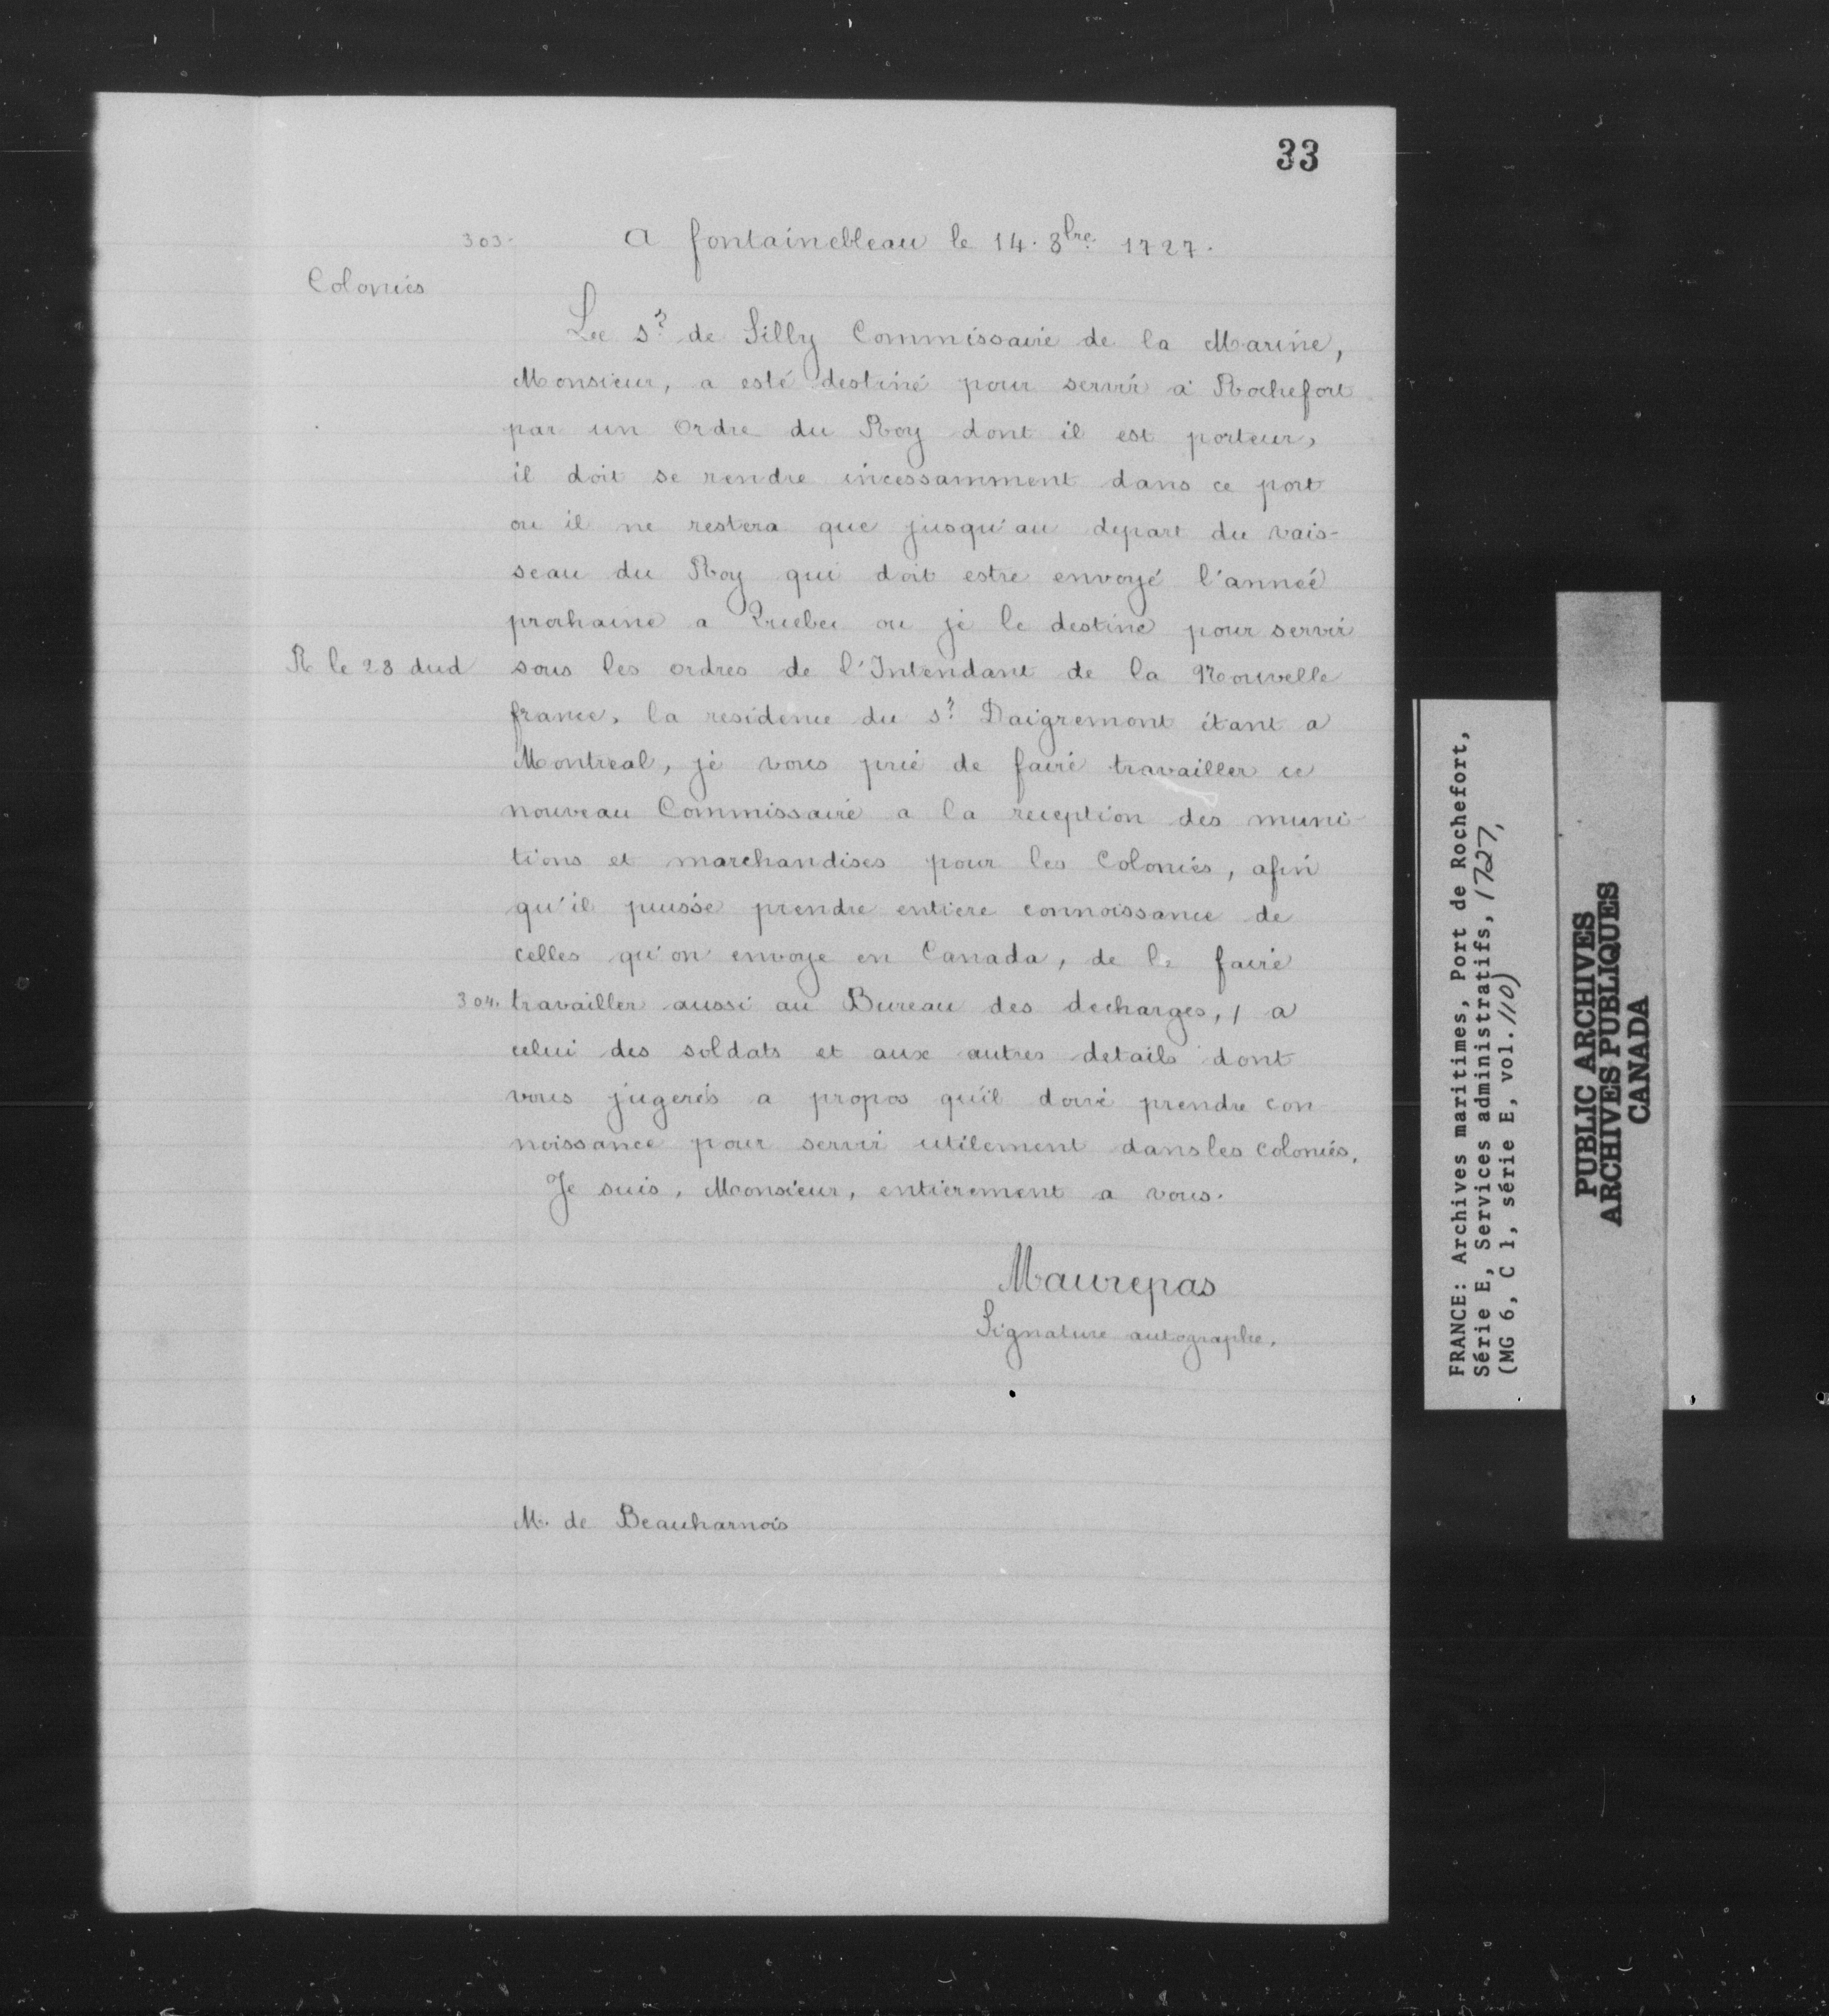 33
303. A fontainebleau le 14. 8bre. 1727.
Colonies
Le Sr. de Silly Commissaire de la Marine,
Monsieur, a esté destiné pour servir a Rochefort
par un Ordre du Roy dont il est porteur,
il doit se rendre incessamment dans ce port
ou il ne restera que jusqu'au depart du vais-
seau du Roy qui doit estre envoyé l'année
prochaine a Quebec ou je le destine pour servir
R le 23 dud sous les ordres de l'Intendant de la Nouvelle
france, la residence du Sr. Daigremont étant a
Montreal, je vous prie de faire travailler ce
nouveau Commissaire a la reception des muni-
tions et marchandises pour les Colonies, afin
qu'il puisse prendre entiere connoissance de
celles qu'on envoye en Canada, de le faire
304. travailler aussi au Bureau des decharges, / a
celui des soldats et aux autres details dont
vous jugerés a propos qu'il doive prendre con
noissance pour servir utilement dans les colonies.
Je suis, Monsieur, entierement a vous.
Maurepas
Signature autographe.
M. de Beauharnois
FRANCE: Archives maritimes, Port de Rochefort,
Série E, Services administratifs, 1727,
(MG 6, C 1, série E, vol. 110)
PUBLIC ARCHIVES
ARCHIVES PUBLIQUES
CANADA